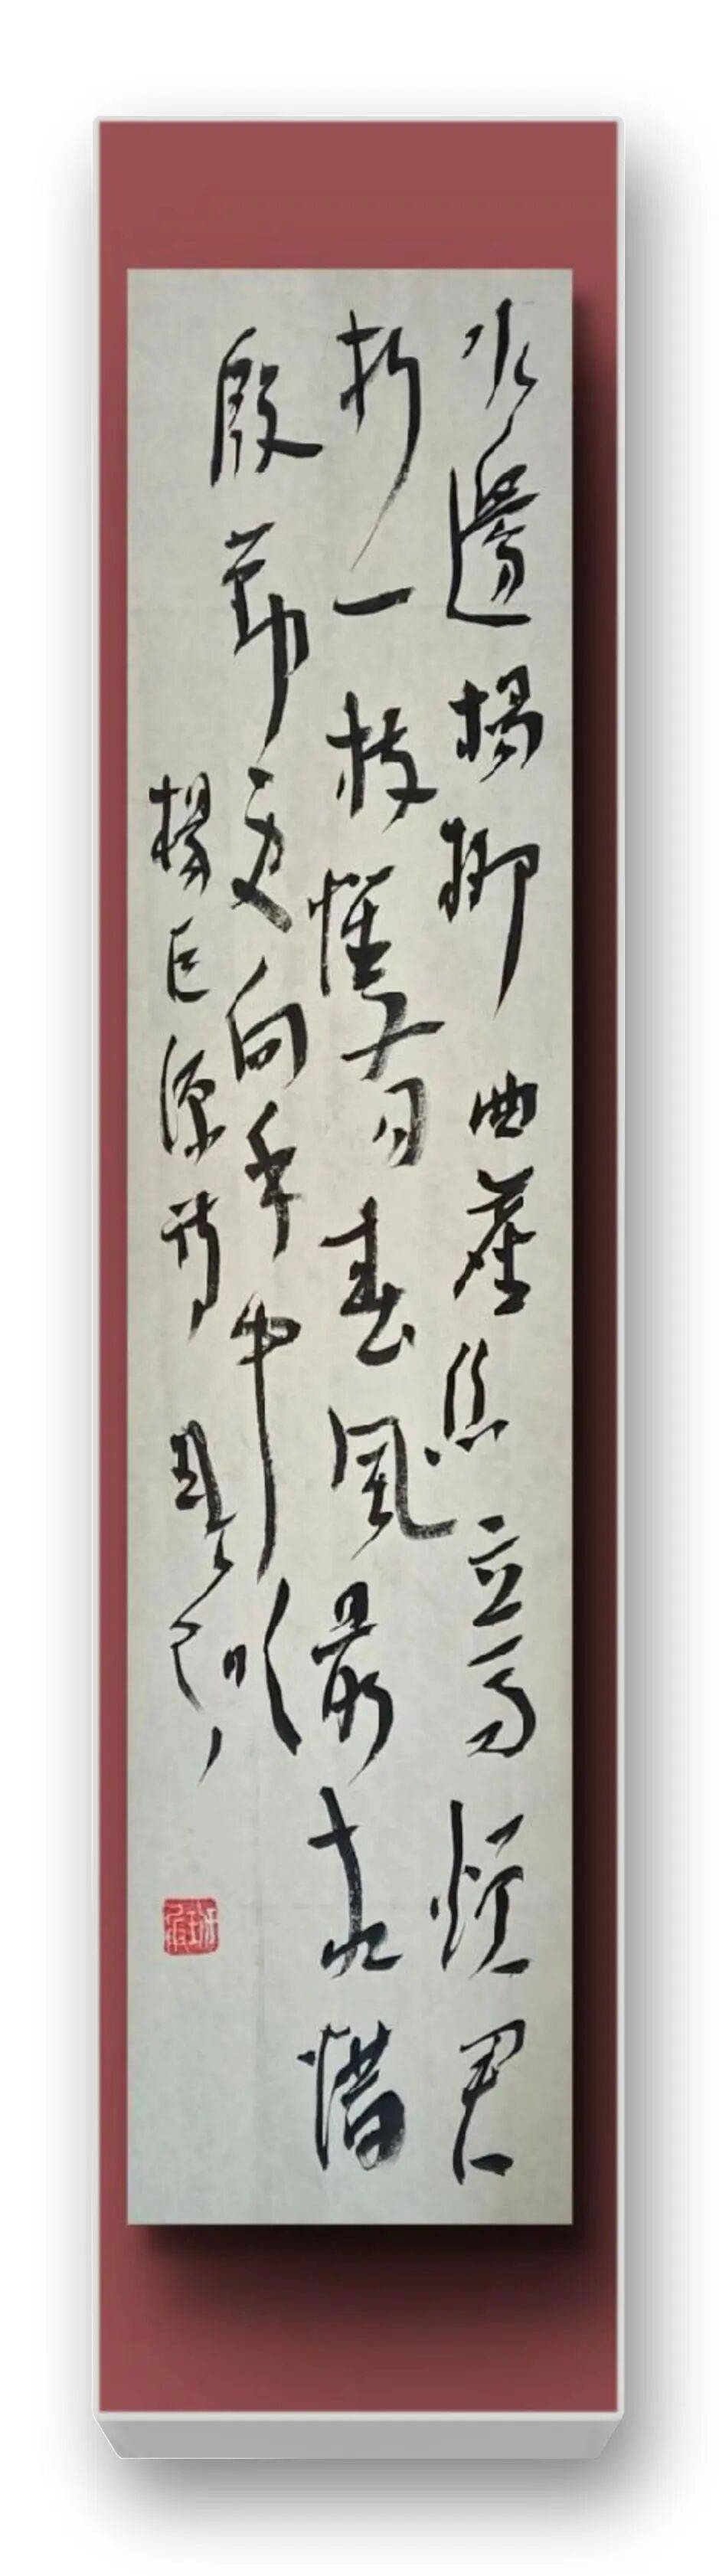 水邊楊柳曲塵絲立馬煩君
折一枝惟有春風最相惜
殷勤更向手中吹
楊巨源詩